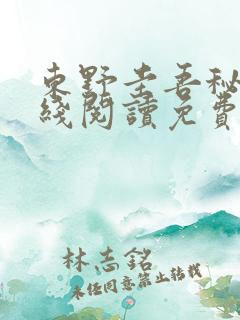 東野圭吾秘
綫閱讀免費
林志銘
未經同意禁止轉載